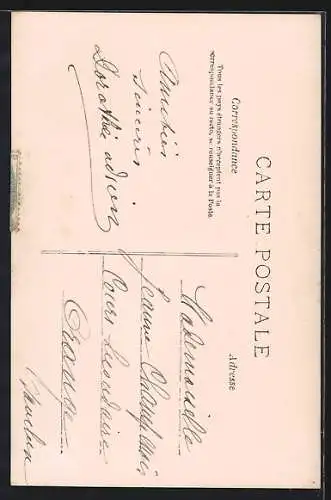 CARTE POSTALE
Correspondance
Tous les pays étrangers n'acceptent pas la
correspondance au recto, se renseigner à la Poste.
Adresse
Amitiés
sincères
Dorothée
Mademoiselle
Jeanne
Cours Secondaire
Orange
Vaucluse